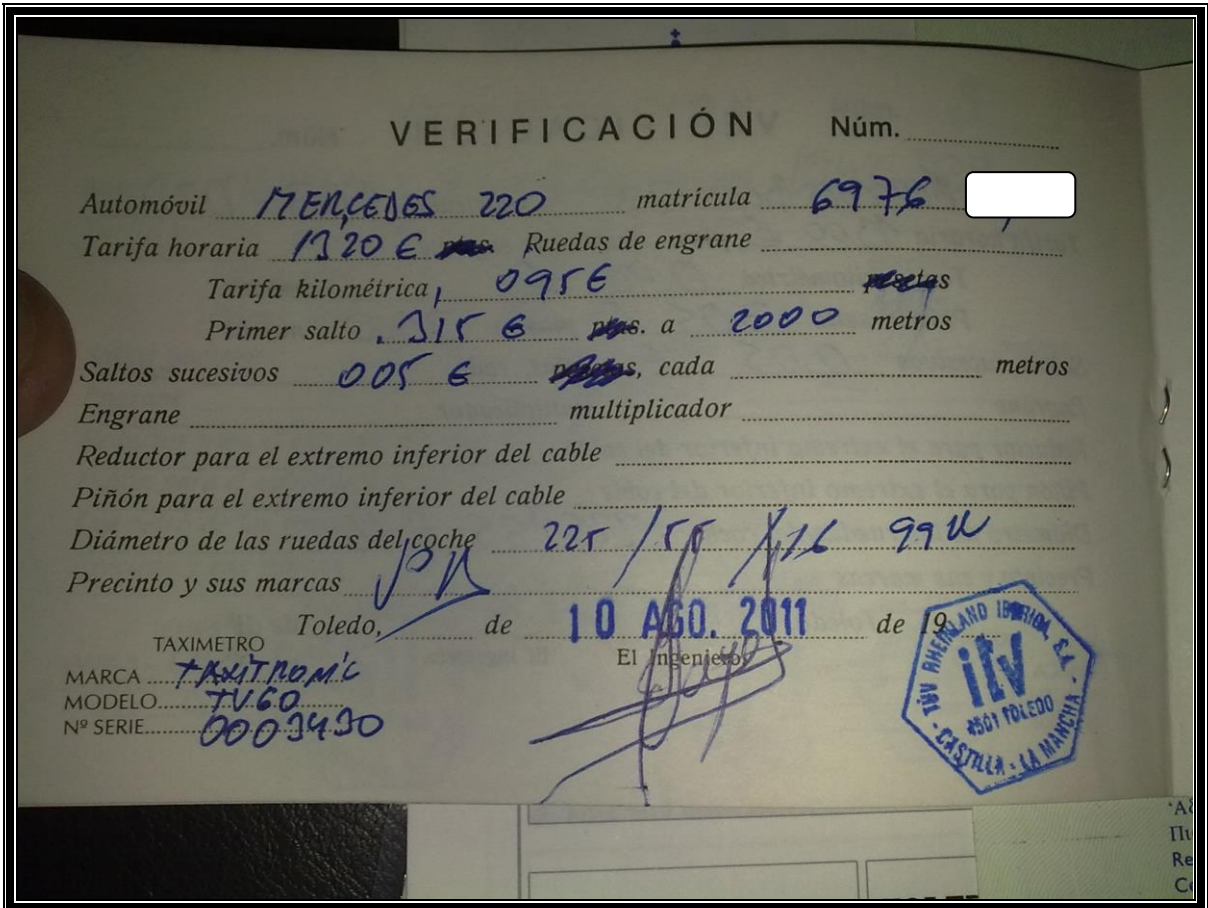 VERIFICACIÓN Núm.
Automóvil MERCEDES 220 matrícula 6976
Tarifa horaria 13,20 € ptas. Ruedas de engrane
Tarifa kilométrica, 095 € pesetas
Primer salto . 315 € ptas. a 2000 metros
Saltos sucesivos 005 € pesetas, cada metros
Engrane multiplicador
Reductor para el extremo inferior del cable
Piñón para el extremo inferior del cable
Diámetro de las ruedas del coche 225 / 55 / 16 99W
Precinto y sus marcas
Toledo, de 10 AGO. 2011 de 19
TAXIMETRO
El Ingeniero,
MARCA TAXITRONIC
MODELO TV60
Nº SERIE 0003430
TÜV RHEINLAND IBERICA, S.A.
itv
4501 TOLEDO
- CASTILLA - LA MANCHA -